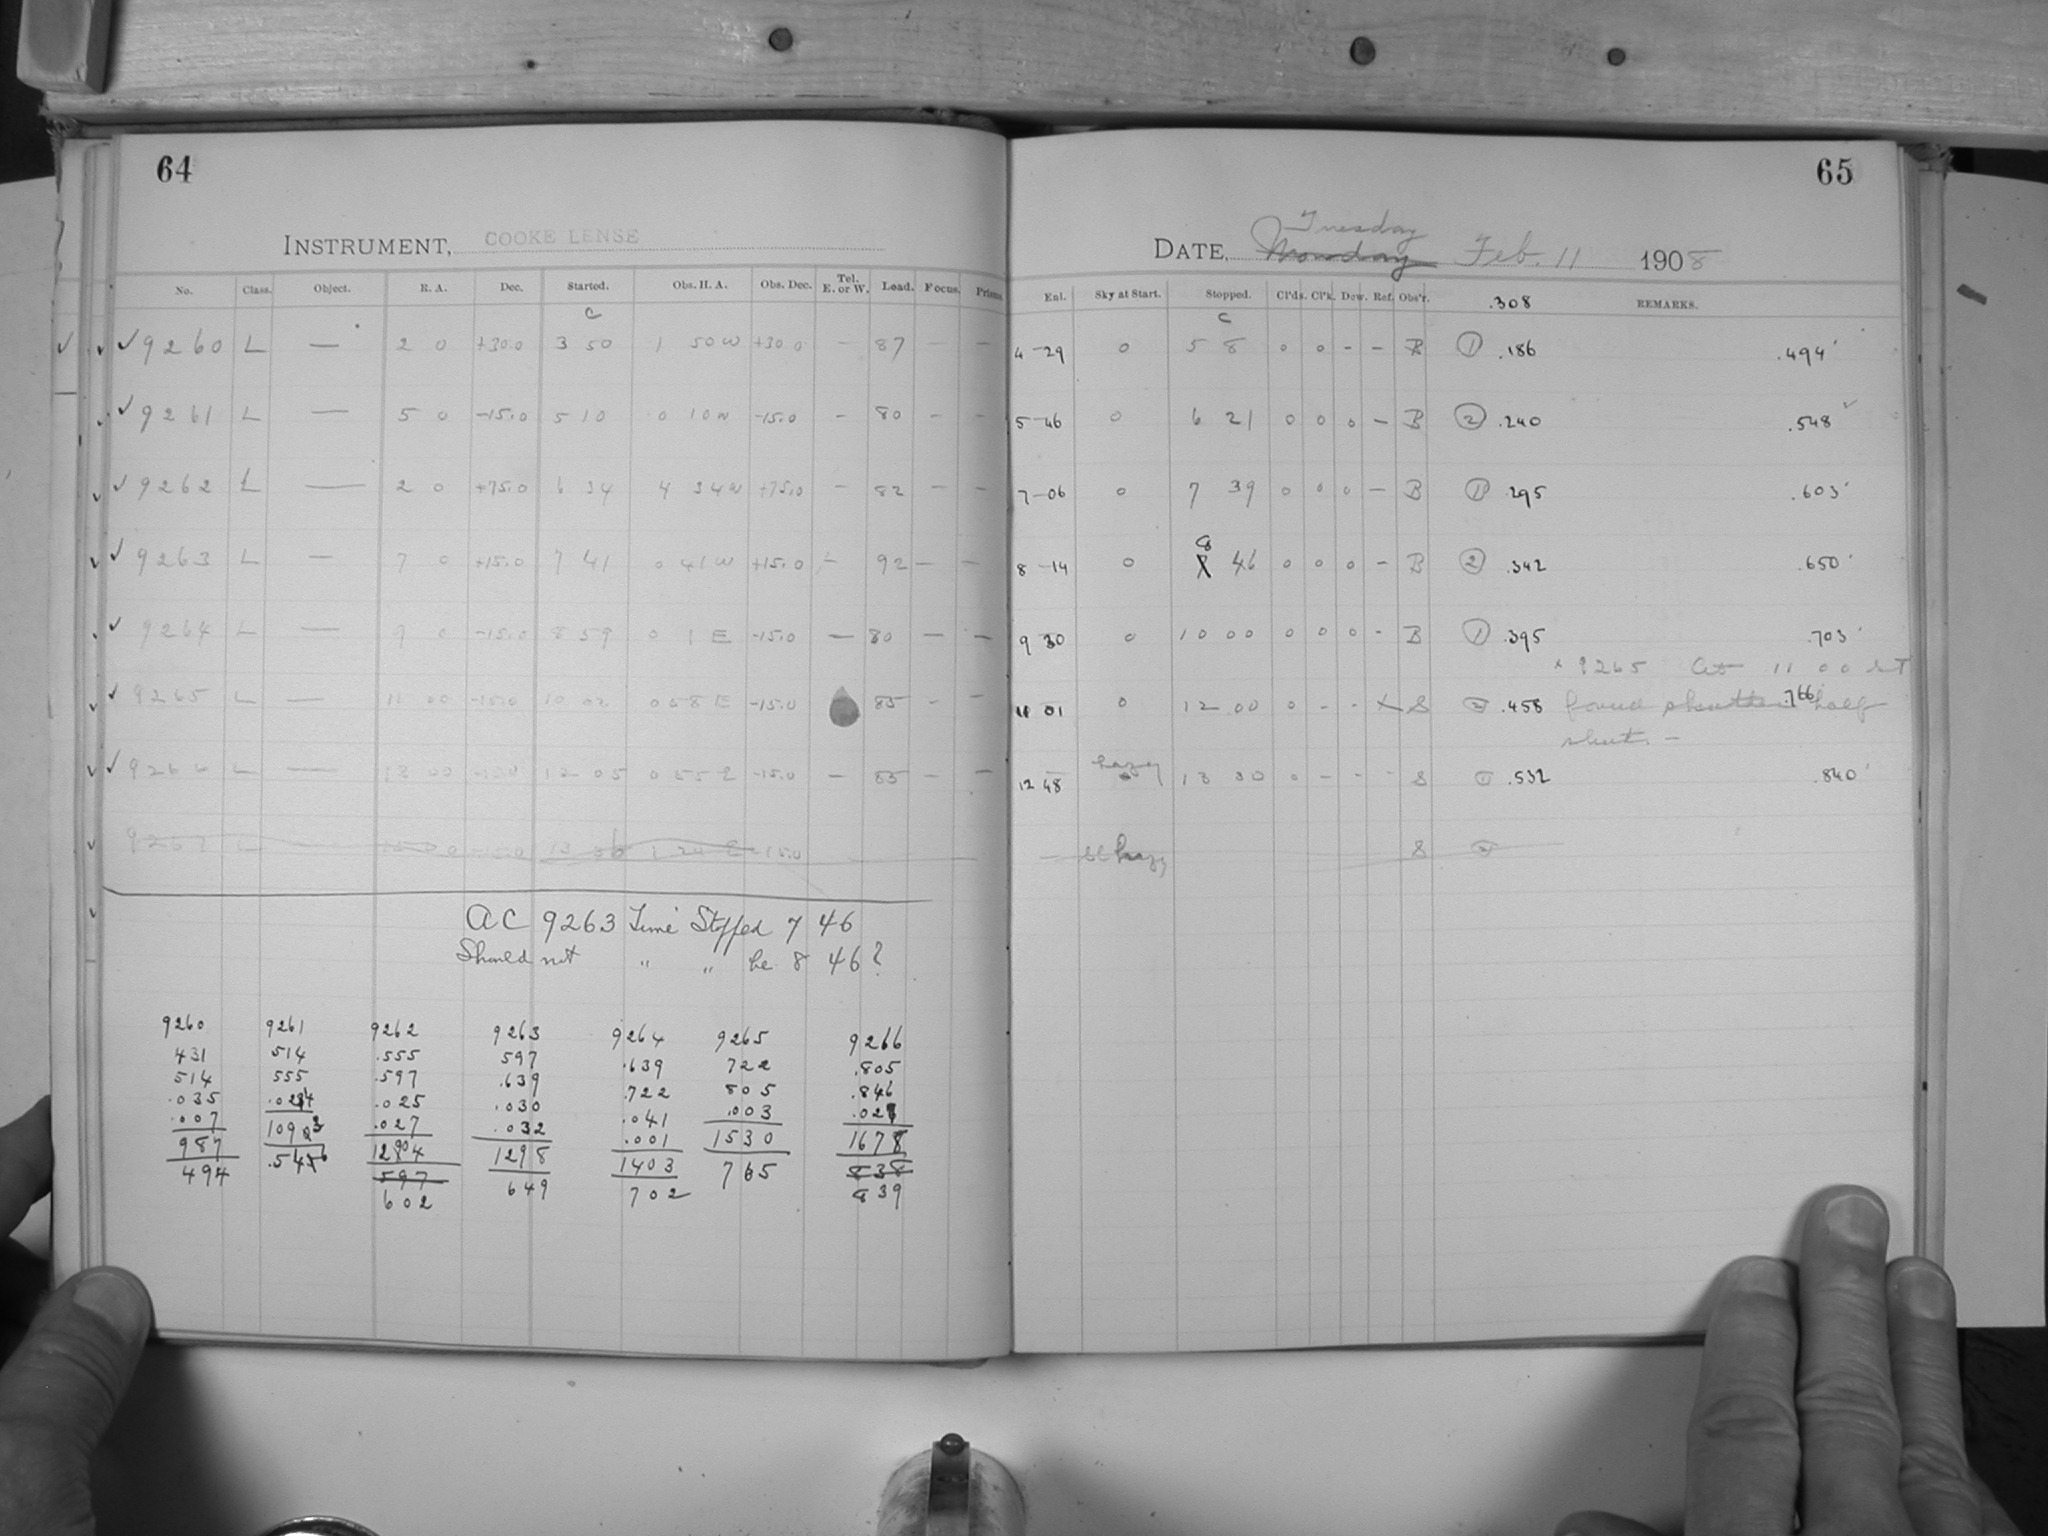 64
INSTRUMENT, COOKE LENSE
No. Class. Object. R. A. Dec. Started. Obs. H. A. Obs. Dec. Tel. E. or W. Load. Focus. Prisms.
C
9260 L — 2 0 +30.0 3 50 1 50 W +30 0 — 87 — —
9261 L — 5 0 -15.0 5 10 0 10 W -15.0 — 80 — —
9262 L — 2 0 +75.0 6 34 4 34 W +75.0 — 82 — —
9263 L — 7 0 +15.0 7 41 0 41 W +15.0 — 92 — —
9264 L — 9 0 -15.0 8 59 0 1 E -15.0 — 80 — —
9265 L — 11 00 -15.0 10 02 0 58 E -15.0 85 — —
9266 L — 13 00 -15.0 12 05 0 55 E -15.0 — 85 — —
9267 L — -15.0 13 36 1 24 E -15.0
AC 9263 Time Stopped 7 46
Should not " " be 8 46?
9260 9261 9262 9263 9264 9265 9266
431 514 .555 597 .639 722 .805
514 555 .597 .639 .722 805 .846
.035 .024 .025 .030 .041 .003 .027
.007 1093 .027 .032 .001 1530 1678
987 .546 1204 1298 1403 765 838
494 597 649 702 839
602
65
DATE, Monday Tuesday Feb. 11 1908
Enl. Sky at Start. Stopped. Cl'ds. Cl'k. Dew. Ref. Obs'r. .308 REMARKS.
C
4-29 0 5 8 0 0 - - B ① .186 .494
5-46 0 6 21 0 0 0 - B ② .240 .548
7-06 0 7 39 0 0 0 - B ① .295 .603
8-14 0 8 46 0 0 0 - B ② .342 .650
9 30 0 10 00 0 0 0 - B ① .395 .703
x 9265 At 11 00 ST
11 01 0 12 00 0 - - x S ② .458 found shutter .766 half
shut. —
12 48 hazy 13 30 0 - - - S ① .532 .840
hazy S ②